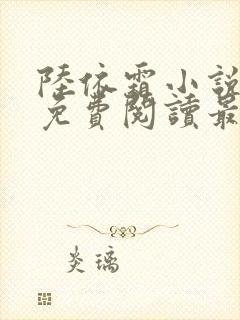 陸依霜小說
免費閱讀最
炎璃